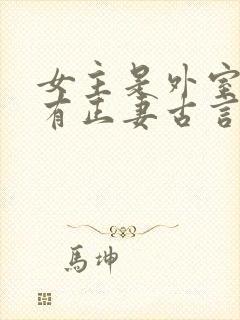 女主是外室
有正妻古言
馬坤